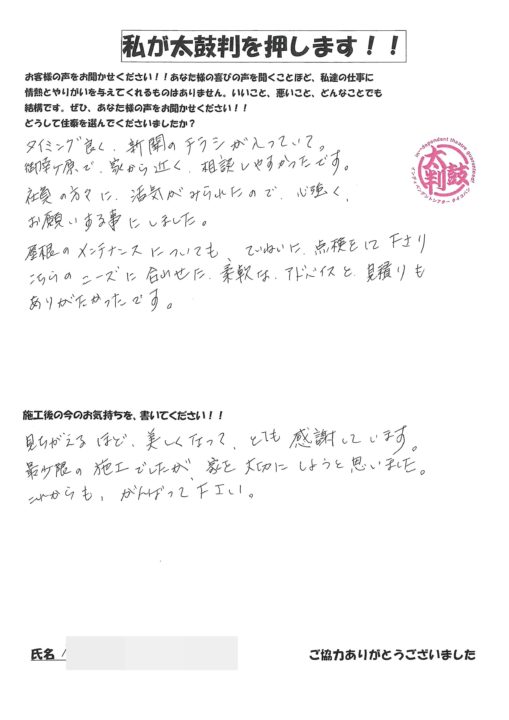 私が太鼓判を押します！！
お客様の声をお聞かせください！！あなた様の喜びの声を聞くことほど、私達の仕事に
情熱とやりがいを与えてくれるものはありません。いいこと、悪いこと、どんなことでも
結構です。ぜひ、あなた様の声をお聞かせください！！
どうして住泰を選んでくださいましたか？
タイミング良く、新聞のチラシが入っていて。
御幸ヶ原で、家から近く、相談しやすかったです。
社員の方々に、活気がみられたので、心強く、
お願いする事にしました。
屋根のメンテナンスについても、ていねいに、点検をして下さり
こちらのニーズに合わせた、柔軟な、アドバイスと、見積りも
ありがたかったです。
independent theatre government
太鼓判
施工後の今のお気持ちを、書いてください！！
見ちがえるほど、美しくなって、とても感謝しています。
最少限の施工でしたが、家を大切にしようと思いました。
これからも、がんばって下さい。
氏名
ご協力ありがとうございました